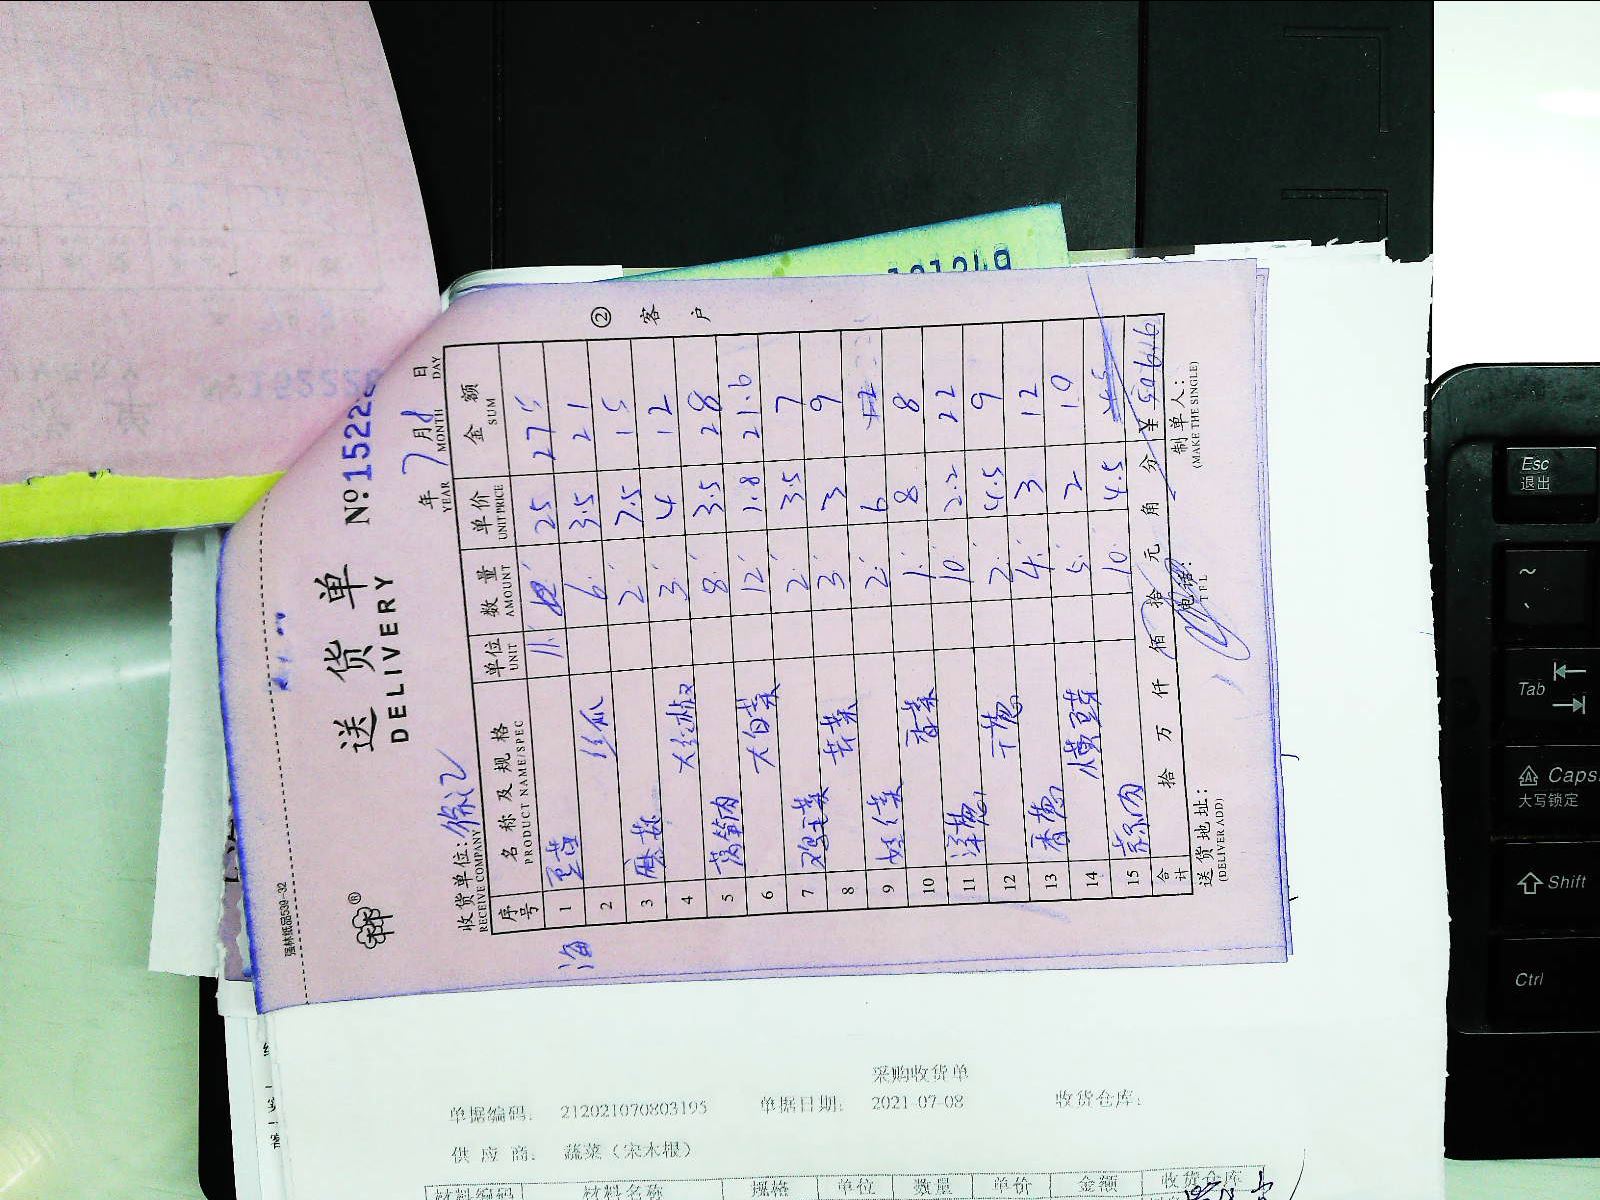 强林纸品539-32
送货单 No:15222
DELIVERY
年 7月8日
YEAR MONTH DAY
收货单位: 徐汇
RECEIVE COMPANY
② 客户
序号 名称及规格 单位 数量 单价 金额
PRODUCT NAME/SPEC UNIT AMOUNT UNIT PRICE SUM
海
1 11 25 275
2 丝瓜 6 3.5 21
3 2 7.5 15
4 大红椒 3 4 12
5 莴笋肉 8 3.5 28
6 大白菜 12 1.8 21.6
7 鸡毛菜 2 3.5 7
8 芹菜 3 3 9
9 2 6 12
10 香菜 1 8 8
11 洋葱 10 2.2 22
12 2 4.5 9
13 香葱 4 3 12
14 黄豆芽 5 2 10
15 10 4.5 45
合计 拾 万 仟 佰 拾 元 角 分 ¥
送货地址: 电话: 制单人:
(DELIVER ADD) TEL (MAKE THE SINGLE)
采购收货单
单据编码: 212021070803195 单据日期: 2021-07-08 收货仓库:
供应商: 蔬菜(宋木根)
材料编码 材料名称 规格 单位 数量 单价 金额 收货仓库
Esc
退出
~
Tab
Caps
大写锁定
Shift
Ctrl